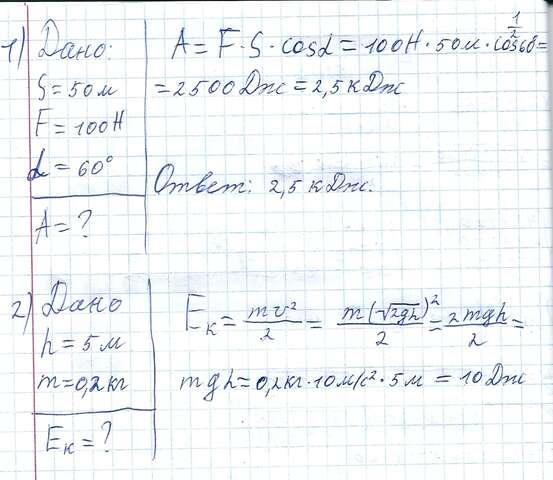 1) Дано:
S = 50 м
F = 100 Н
α = 60°
A = ?
A = F · S · cosα = 100Н · 50 м · cos60 =
1/2
= 2500 Дж = 2,5 кДж
Ответ: 2,5 кДж.
2) Дано
h = 5 м
m = 0,2 кг
Eк = ?
Eк = mv²/2 = m(√2gh)²/2 = 2mgh/2 =
mgh = 0,2кг · 10м/с² · 5 м = 10 Дж